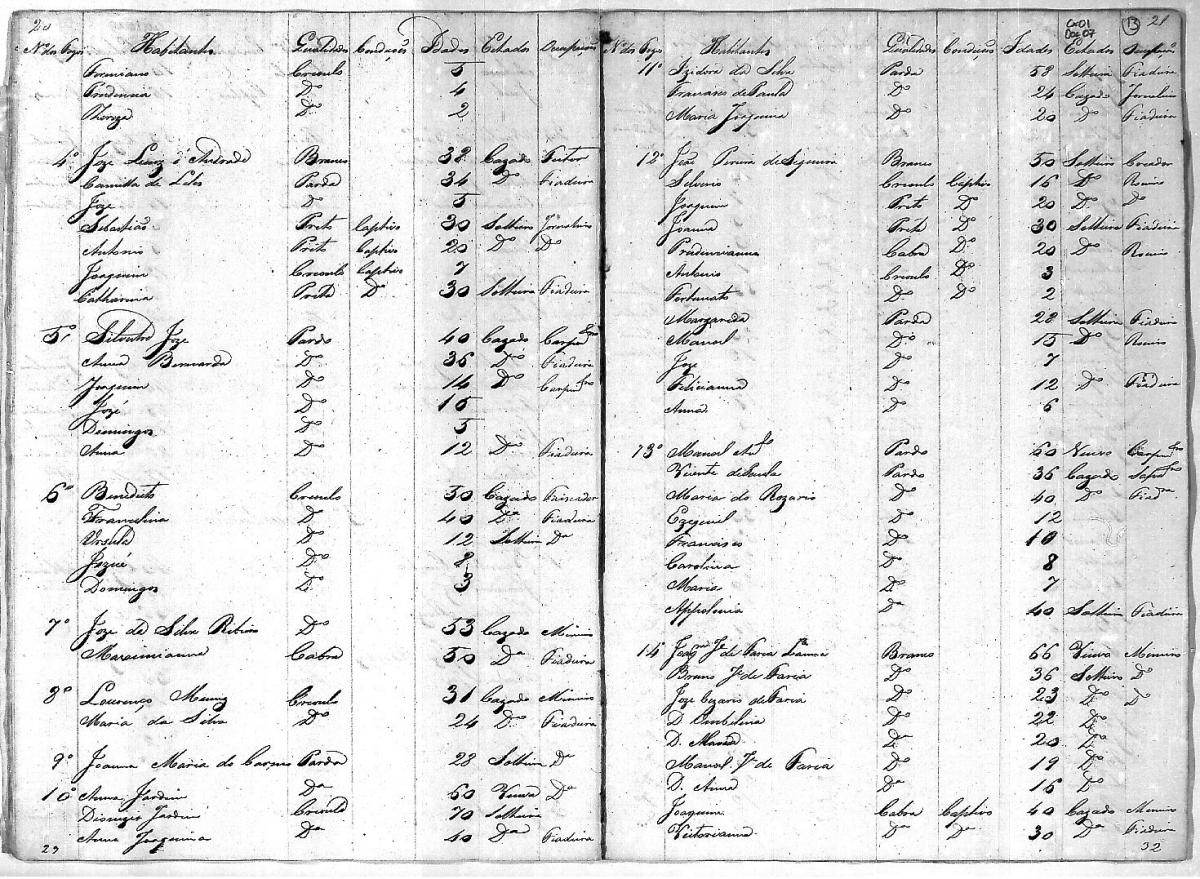 20
Nº dos Fogos Habitantes Qualidades Condição Idades Estados Occupações
Firmiano Creoulo 5
Prudencia Dº 4
Thereza Dº 2
4º Joze Luiz d'Andrade Branco 38 Cazado Feitor
Camilla de Leles Parda 34 Dº Fiadeira
Joze Dº 5
Sebastião Preto Captivo 30 Solteiro Jornaleiro
Antonio Preto Captivo 20 Dº Dº
Joaquim Creoulo Captivo 7
Catharina Preta Dº 30 Solteira Fiadeira
5º Silvestre Joze Pardo 40 Cazado Carpro
Anna Bernarda Dº 36 Dº Fiadeira
Joaquim Dº 14 Dº Carpro
Jozé Dº 10
Domingos Dº 5
Anna Dº 12 Dº Fiadeira
6º Benedicto Creoulo 50 Cazado Faiscador
Francelina Dº 40 Dª Fiadeira
Ursula Dº 12 Solteira Dª
Jozué Dº 8
Domingos Dº 3
7º Joze da Silva Ribeiro Dº 53 Cazado Mineiro
Maximianna Cabra 50 Dª Fiadeira
8º Lourenço Muniz Creoulo 31 Cazado Mineiro
Maria da Silva Dº 24 Dº Fiadeira
9º Joanna Maria do Carmo Parda 28 Solteira Dª
10º Anna Jardim Dª 60 Viuva Dª
Dionizio Jardim Creoulo 70 Solteiro
Anna Joaquina Dª 40 Dª Fiadeira
23
Cx01
Doc 07
13
21
Nº dos Fogos Habitantes Qualidades Condição Idades Estados Occupações
11º Izidora da Silva Parda 58 Solteira Fiadeira
Francisco de Paula Dº 24 Cazado Jornaleiro
Maria Joaquina Dº 20 Dº Fiadeira
12º João Pereira de Siqueira Branco 50 Solteiro Creador
Silverio Creoulo Captivo 16 Dº Roceiro
Joaquim Preto Dº 20 Dº Dº
Joanna Preta Dº 30 Solteira Fiadeira
Prudencianna Cabra Dº 20 Dº Roceiro
Antonio Creoulo Dº 3
Fortunato Dº Dº 2
Margarida Parda 28 Solteira Fiadeira
Manoel Dº 15 Dº Roceiro
Joze Dº 7
Felicianna Dº 12 Dº Fiadeira
Anna Dº 6
13º Manoel Anto Pardo 60 Viuvo Carpro
Vicente de Paula Pardo 36 Cazado Sapro
Maria do Rozario Dº 40 Dº Fiadra
Ezequiel Dº 12
Francisco Dº 10
Carolina Dº 8
Maria Dº 7
Appolonia Dª 40 Solteira Fiadeira
14º Branco 66 Viuvo Mineiro
Bruno Je de Faria Dº 36 Solteiro Dº
Joze Cezario de Faria Dº 23 Dº Dº
D. Ombelina Dº 22 Dº
D. Maria Dª 20 Dº
Manoel Je de Faria Dº 19 Dº
D. Anna Dª 16 Dº
Joaquim Cabra Captivo 40 Cazado Mineiro
Victorianna Dª Dª 30 Dª Fiadeira
32